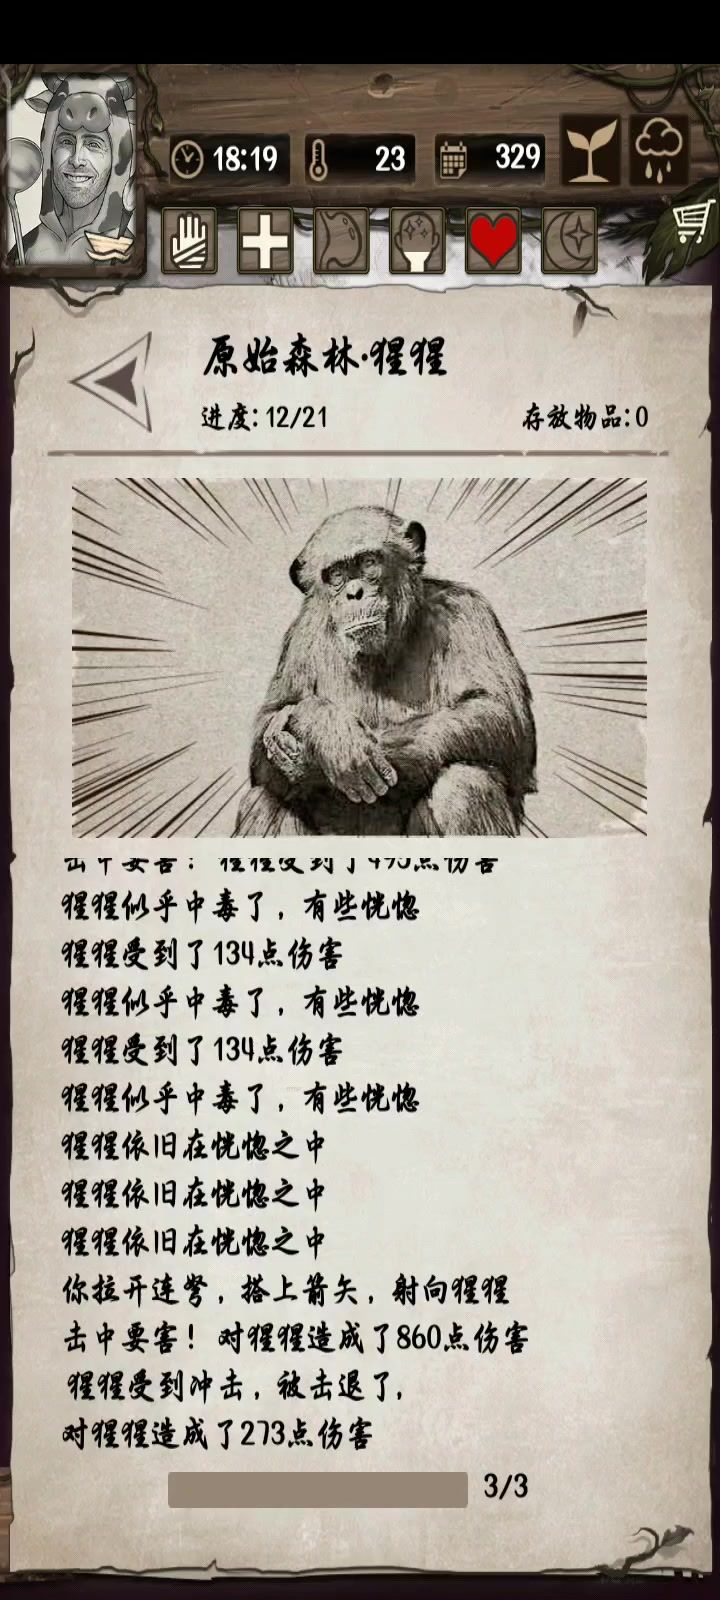 18:19
23
329
原始森林·猩猩
进度:12/21
存放物品:0
击中要害！猩猩受到了495点伤害
猩猩似乎中毒了，有些恍惚
猩猩受到了134点伤害
猩猩似乎中毒了，有些恍惚
猩猩受到了134点伤害
猩猩似乎中毒了，有些恍惚
猩猩依旧在恍惚之中
猩猩依旧在恍惚之中
猩猩依旧在恍惚之中
你拉开连弩，搭上箭矢，射向猩猩
击中要害！对猩猩造成了860点伤害
猩猩受到冲击，被击退了，
对猩猩造成了273点伤害
3/3